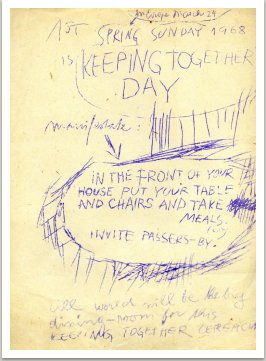 March 24
1ST SPRING SUNDAY 1968
IS KEEPING TOGETHER
DAY
manifestate:
IN THE FRONT OF YOUR
HOUSE PUT YOUR TABLE
AND CHAIRS AND TAKE
MEALS.
INVITE PASSERS-BY.
will be the big
dining-room for this
KEEPING TOGETHER